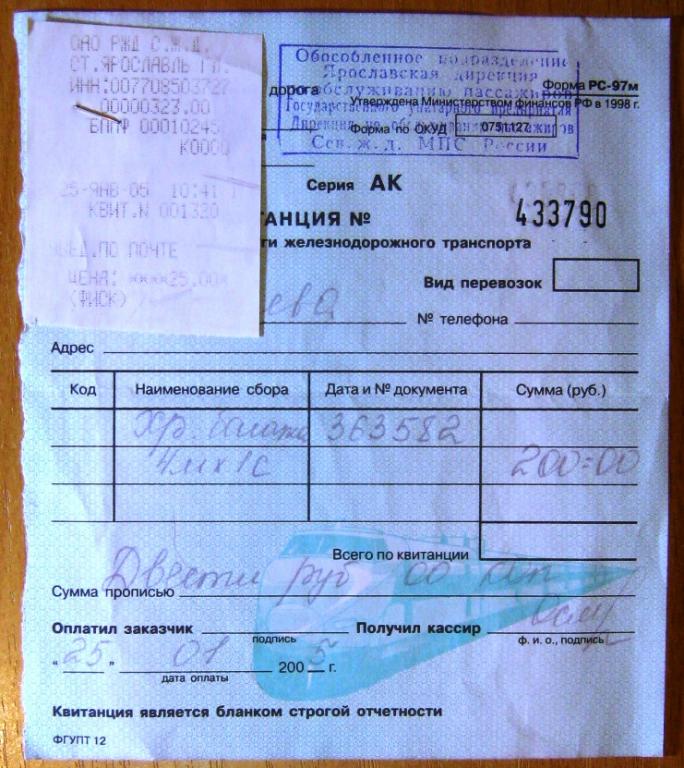 ОАО РЖД С.Ж.Д.
СТ.ЯРОСЛАВЛЬ ГЛ.
ИНН:007708503727
00000323.00
00010245
К0000
25-ЯНВ-05 10:41
КВИТ.N 001320
ПО ПОЧТЕ
ЦЕНА: ****25.00*
(ФИСК)
Обособленное подразделение
Ярославская дирекция
обслуживанию пассажиров
Государственного унитарного предприятия
Сев.ж.д. МПС России
дорога
Форма РС-97м
Утверждена Министерством финансов РФ в 1998 г.
Форма по ОКУД 0751127
Серия АК
ТАНЦИЯ № 433790
ги железнодорожного транспорта
Вид перевозок
ева № телефона
Адрес
Код Наименование сбора Дата и № документа Сумма (руб.)
Хр. багажа 363582
4м х 1с 200=00
Всего по квитанции
Сумма прописью Двести руб 00 коп
Оплатил заказчик Получил кассир
подпись ф. и. о., подпись
"25" 01 2005 г.
дата оплаты
Квитанция является бланком строгой отчетности
ФГУПТ 12